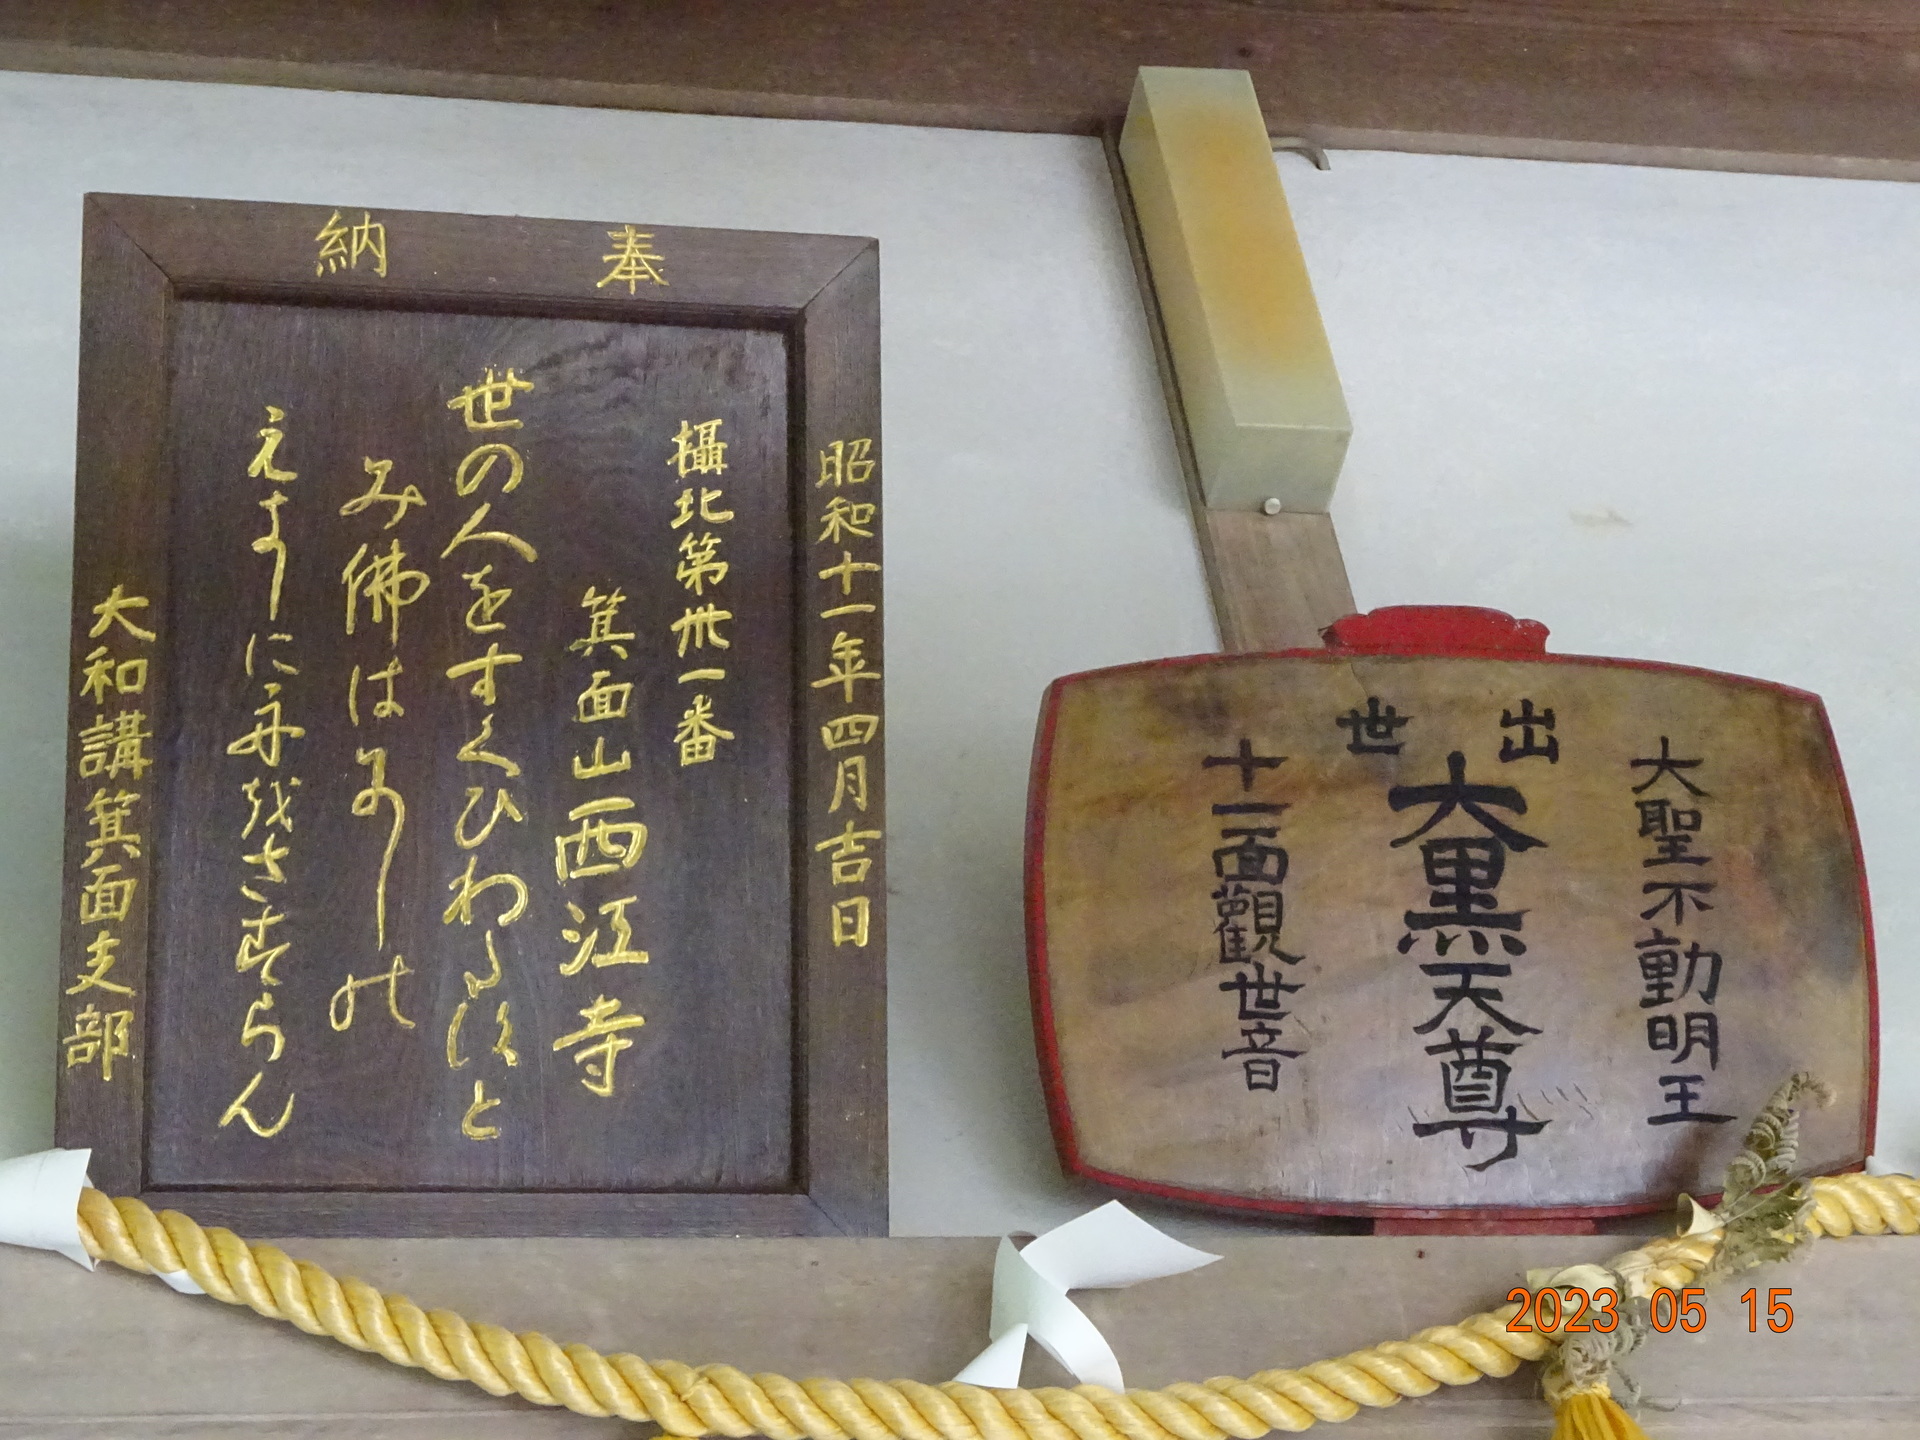 奉納
昭和十一年四月吉日
攝北第卅一番
箕面山西江寺
世の人をすくひわ と
み佛は の
に さすらん
大和講箕面支部
大聖不動明王
出世
大黒天尊
十一面觀世音
2023 05 15